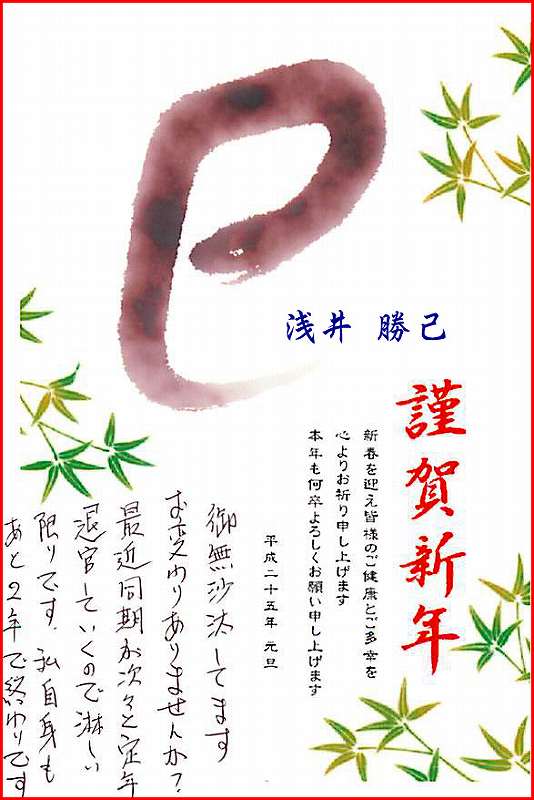 巳
浅井 勝己
謹賀新年
新春を迎え皆様のご健康とご多幸を
心よりお祈り申し上げます
本年も何卒よろしくお願い申し上げます
平成二十五年 元旦
御無沙汰してます
お変わりありませんか？
最近同期が次々と定年
退官していくので淋しい
限りです。私自身も
あと2年で終わりです